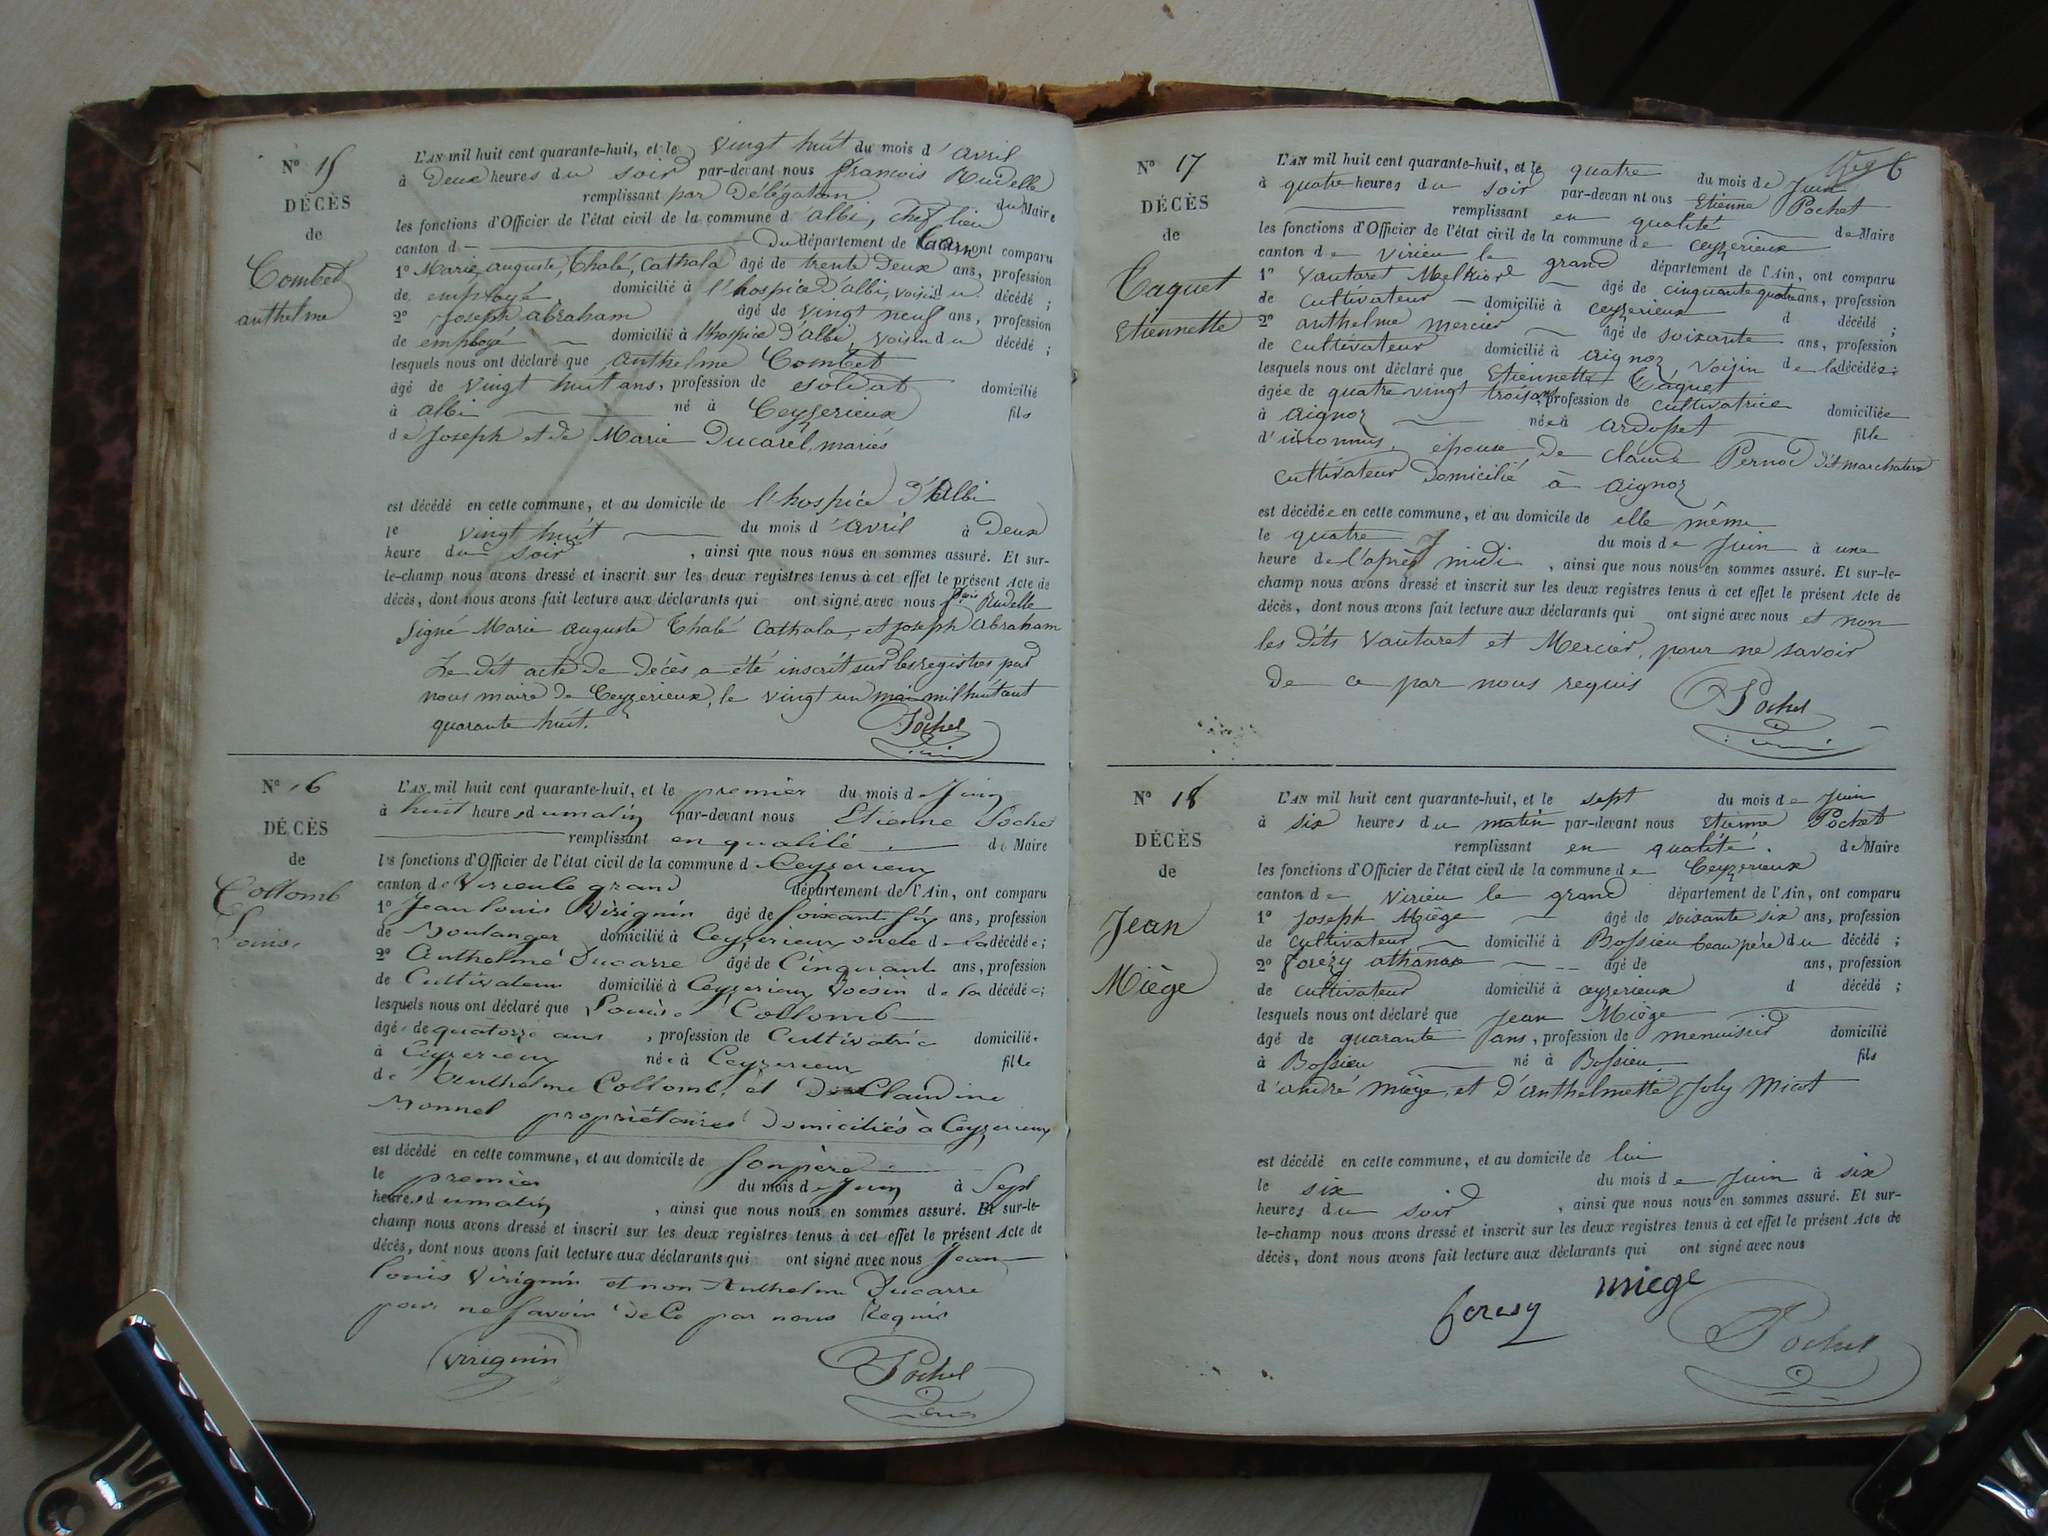 N° 15
DÉCÈS
de
Combet
anthelme
L'AN mil huit cent quarante-huit, et le vingt huit du mois d'avril
à Deux heures du soir par-devant nous françois Rudelle
remplissant par Délégation du Maire
les fonctions d'Officier de l'état civil de la commune d'albi, chef lieu
canton d — Du département de tarn ont comparu
1° Marie, auguste, Thalé, Cathala âgé de trente Deux ans, profession
de employé domicilié à l'hospice d'albi, voisin du décédé ;
2° Joseph abraham âgé de vingt neuf ans, profession
de employé domicilié à l'hospice d'albi, voisin du décédé ;
lesquels nous ont déclaré que anthelme Combet
âgé de vingt huit ans, profession de soldat domicilié
à albi né à Ceyzerieux fils
de Joseph et de Marie Ducarel, mariés
est décédé en cette commune, et au domicile de l'hospice d'Albi
le vingt huit du mois d'avril à Deux
heure du soir , ainsi que nous nous en sommes assuré. Et sur-
le-champ nous avons dressé et inscrit sur les deux registres tenus à cet effet le présent Acte de
décès, dont nous avons fait lecture aux déclarants qui ont signé avec nous Rudelle
Signé Marie auguste Thalé Cathala, et Joseph Abraham
Le dit acte de décès a été inscrit sur les registres par
nous maire de Ceyzerieux, le vingt un mai mil huit cent
quarante huit. Pochet
N° 16
DÉCÈS
de
Collomb
Louise
L'AN mil huit cent quarante-huit, et le premier du mois de Juin
à huit heures du matin par-devant nous Etienne Pochet
remplissant en qualité de Maire
les fonctions d'Officier de l'état civil de la commune de Ceyzerieu
canton de Virieu le grand département de l'Ain, ont comparu
1° Jean louis Virignin âgé de soixante six ans, profession
de Boulanger domicilié à Ceyzerieu oncle de la décédée ;
2° Anthelme Ducarre âgé de Cinquante ans, profession
de Cultivateur domicilié à Ceyzerieu voisin de la décédée ;
lesquels nous ont déclaré que Louise Collomb
âgée de quatorze ans , profession de Cultivatrice domiciliée
à Ceyzerieu née à Ceyzerieu fille
de Anthelme Collomb, et De Claudine
Monnel propriétaires domiciliés à Ceyzerieu
est décédé en cette commune, et au domicile de son père
le premier du mois de Juin à Sept
heures du matin , ainsi que nous nous en sommes assuré. Et sur-le-
champ nous avons dressé et inscrit sur les deux registres tenus à cet effet le présent Acte de
décès, dont nous avons fait lecture aux déclarants qui ont signé avec nous Jean
louis Virignin et non Anthelme Ducarre
pour ne savoir de Ce par nous Requis
Virignin Pochet
6
N° 17
DÉCÈS
de
Caquet
Etiennette
L'AN mil huit cent quarante-huit, et le quatre du mois de Juin
à quatre heures du soir par-devant nous Etienne Pochet
remplissant en qualité de Maire
les fonctions d'Officier de l'état civil de la commune de ceyzerieux
canton de Virieu le grand département de l'Ain, ont comparu
1° Vautaret Melkiord âgé de cinquante quatre ans, profession
de cultivateur domicilié à ceyzerieux d décédé ;
2° anthelme mercier âgé de soixante ans, profession
de cultivateur domicilié à aignoz voisin de la décédée ;
lesquels nous ont déclaré que Etiennette Caquet
âgée de quatre vingt trois ans, profession de cultivatrice domiciliée
à aignoz née à ardosset fille
d'inconnus, épouse de claude Pernod dit
cultivateur domicilié à aignoz
est décédée en cette commune, et au domicile de elle même
le quatre du mois de Juin à une
heure de l'après midi , ainsi que nous nous en sommes assuré. Et sur-le-
champ nous avons dressé et inscrit sur les deux registres tenus à cet effet le présent Acte de
décès, dont nous avons fait lecture aux déclarants qui ont signé avec nous et non
les dits Vautaret et Mercier, pour ne savoir
de ce par nous requis Pochet
N° 18
DÉCÈS
de
Jean
Miège
L'AN mil huit cent quarante-huit, et le sept du mois de Juin
à six heures du matin par-devant nous Etienne Pochet
remplissant en qualité. de Maire
les fonctions d'Officier de l'état civil de la commune de Ceyzerieux
canton de Virieu le grand département de l'Ain, ont comparu
1° Joseph Miège âgé de soixante six ans, profession
de cultivateur domicilié à Bossieu beau père du décédé ;
2° forezy athanase âgé de ans, profession
de cultivateur domicilié à ceyzerieux d décédé ;
lesquels nous ont déclaré que Jean Miège
âgé de quarante ans, profession de menuisier domicilié
à Bossieu né à Bossieu fils
d'andré miège, et D'anthelmette Joly Micot
est décédé en cette commune, et au domicile de lui
le six du mois de Juin à six
heures du soir , ainsi que nous nous en sommes assuré. Et sur-
le-champ nous avons dressé et inscrit sur les deux registres tenus à cet effet le présent Acte de
décès, dont nous avons fait lecture aux déclarants qui ont signé avec nous
forezy miege Pochet